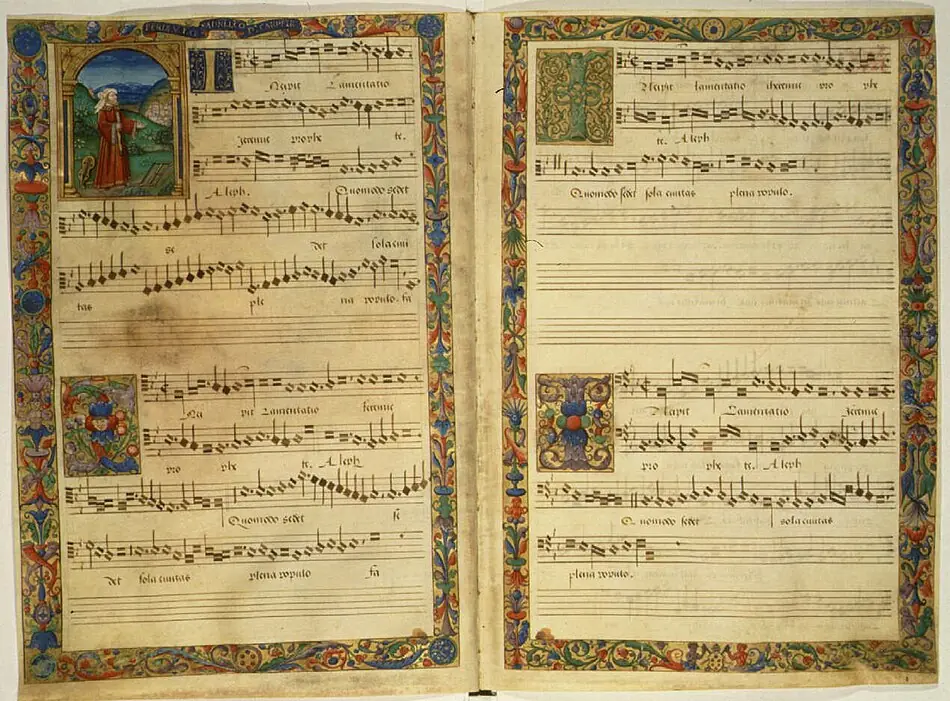 Ncipit Lamentatio
Jeremie prophe te.
Aleph. Quomodo sedet
se det sola civi
tas ple na populo. fa
Nci pit Lamentatio Jeremie
pro phe te. Aleph
Quomodo sedet se
det sola civitas plena populo fa
Ncipit lamentatio iheremie pro phe
te. Aleph
Quomodo sedet sola civitas plena populo.
Ncipit Lamentatio Jeremie
pro phe te. Aleph
Quomodo sedet sola civitas
plena populo.